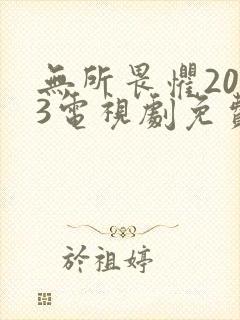 無所畏懼20
3電視劇免費
於祖婷